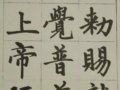 勅賜
覺普
上帝